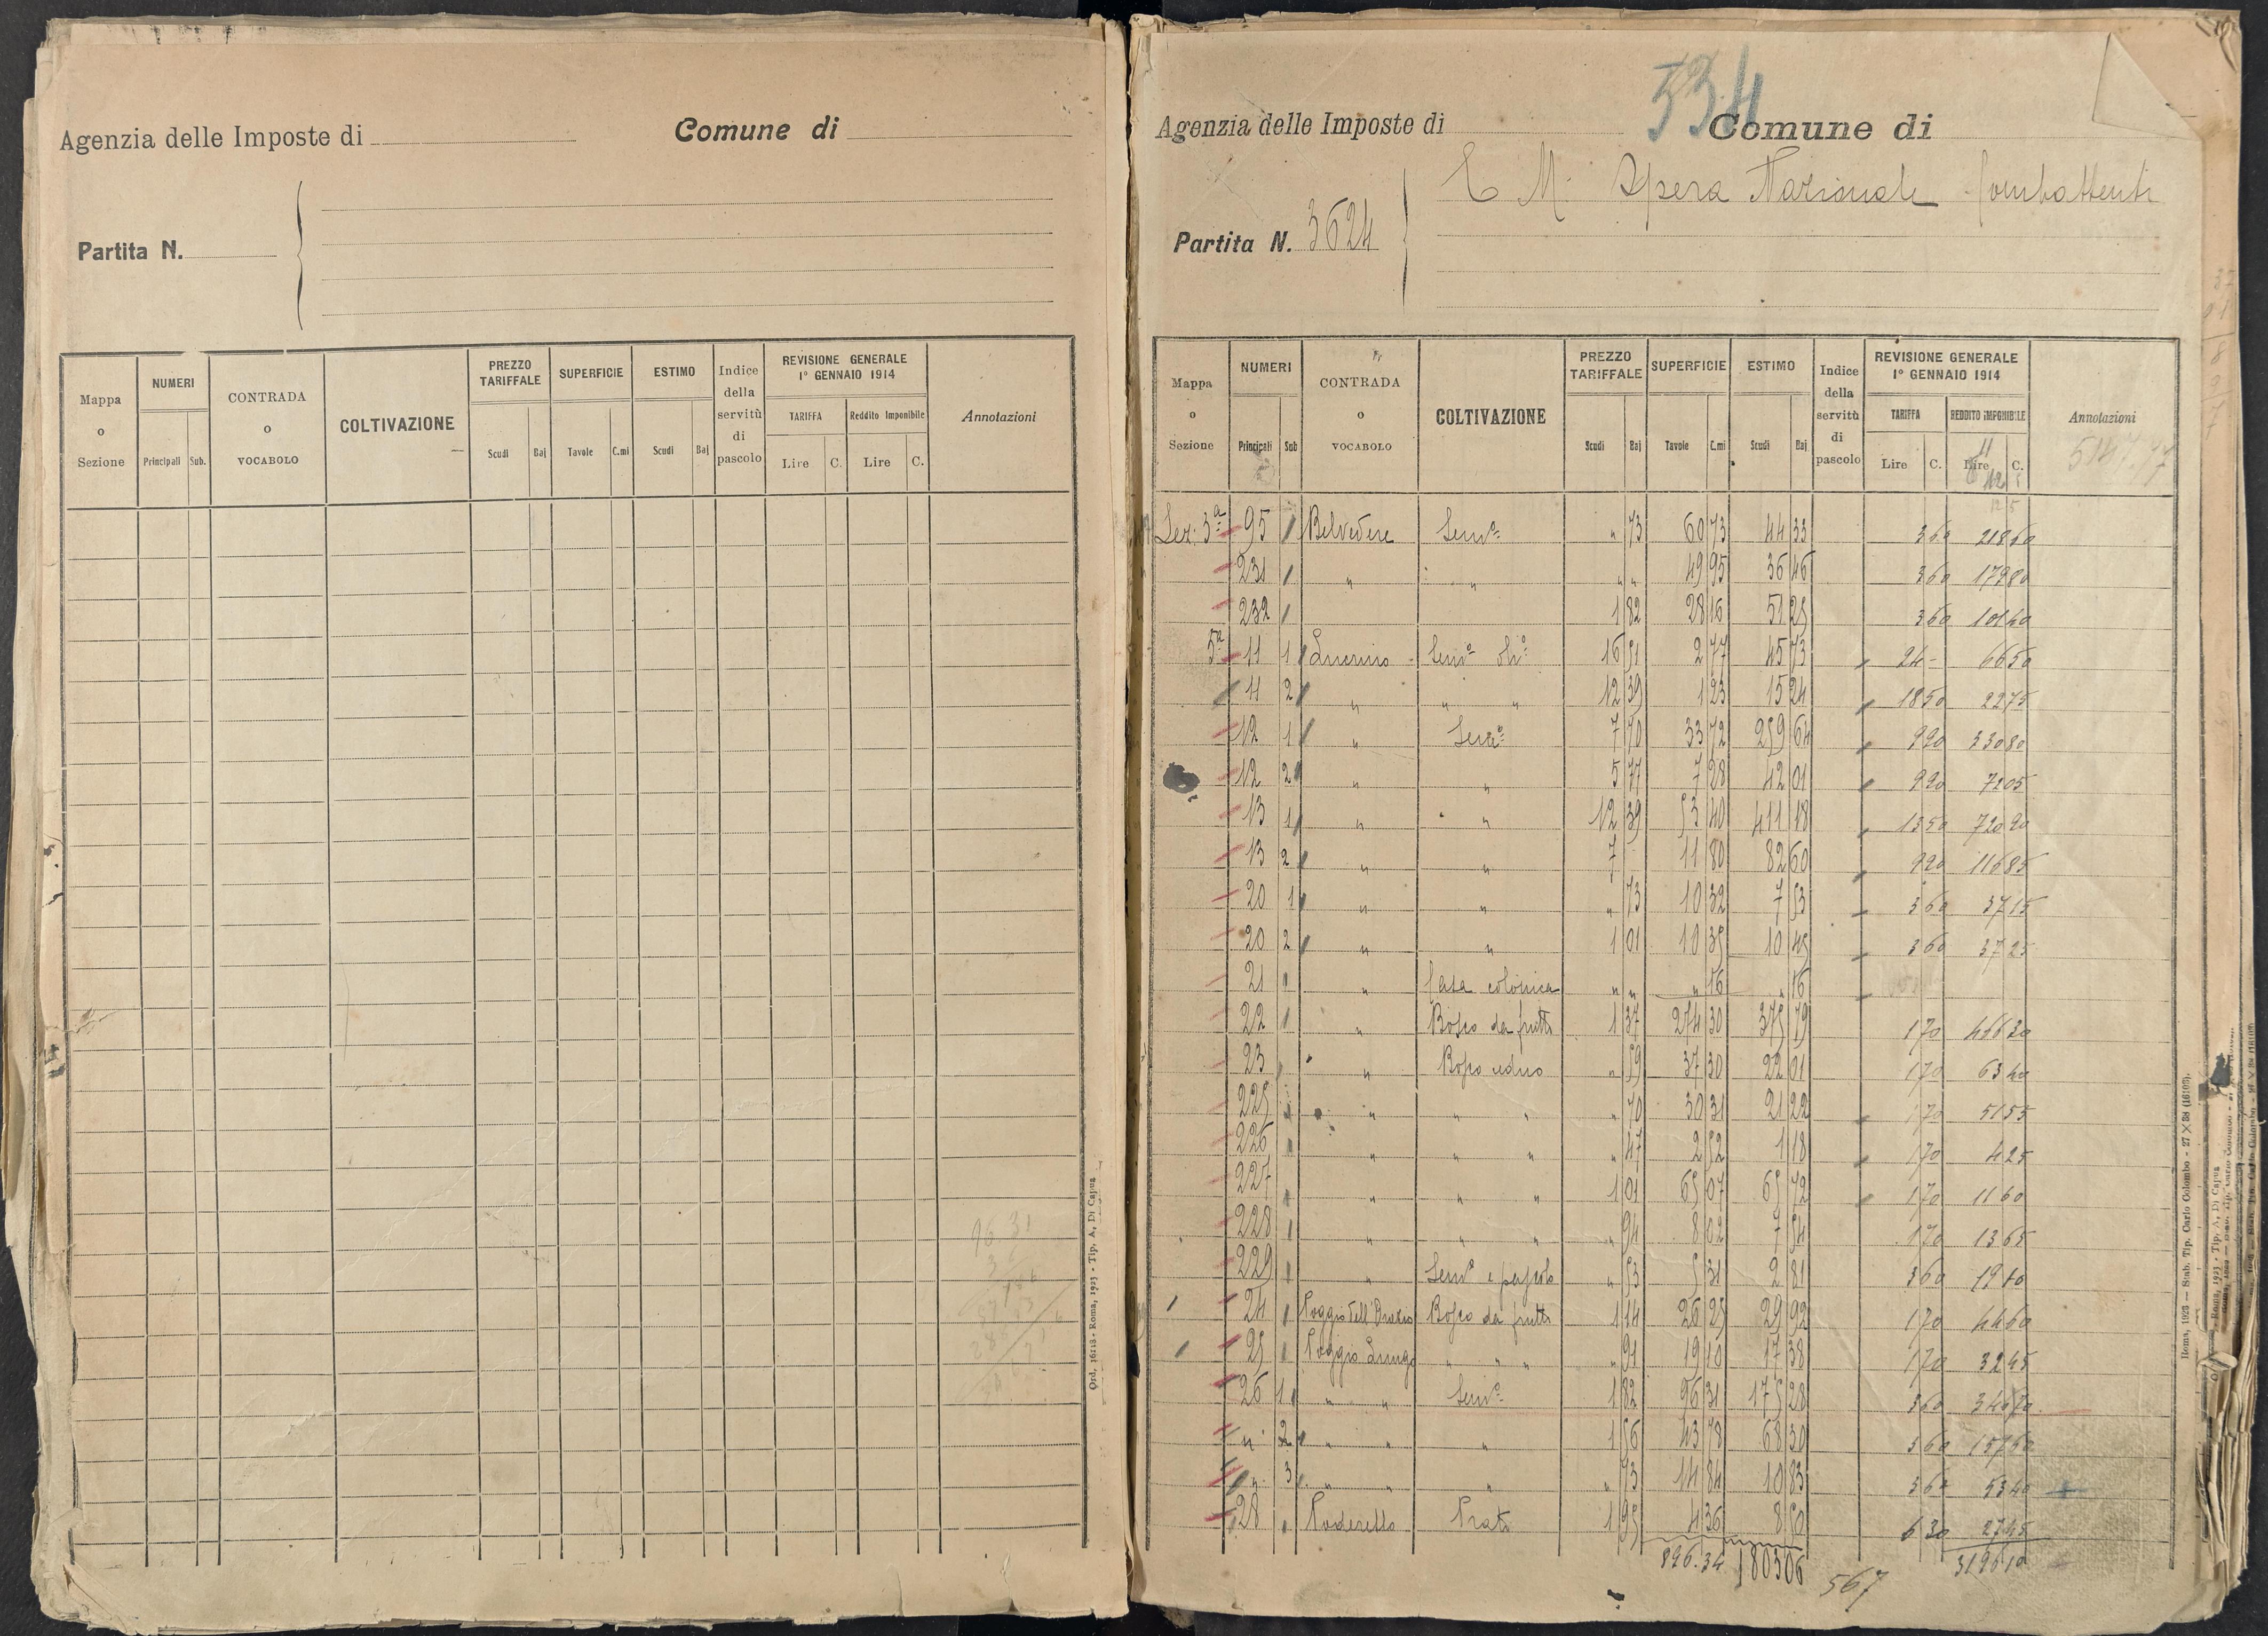 Agenzia delle Imposte di
Comune di
Partita N.
Mappa o Sezione
NUMERI
Principali Sub.
CONTRADA o VOCABOLO
COLTIVAZIONE
PREZZO TARIFFALE
Scudi Baj
SUPERFICIE
Tavole C.mi
ESTIMO
Scudi Baj
Indice della servitù di pascolo
REVISIONE GENERALE
1° GENNAIO 1914
TARIFFA
Lire C.
Reddito Imponibile
Lire C.
Annotazioni
96 31
Ord. 16113 - Roma, 1923 - Tip. A. Di Capua
534
Agenzia delle Imposte di
Comune di
Partita N. 3624
Opera Nazionale Combattenti
Mappa o Sezione
NUMERI
Principali Sub
CONTRADA o VOCABOLO
COLTIVAZIONE
PREZZO TARIFFALE
Scudi Baj
SUPERFICIE
Tavole C.mi
ESTIMO
Scudi Baj
Indice della servitù di pascolo
REVISIONE GENERALE
1° GENNAIO 1914
TARIFFA
Lire C.
REDDITO IMPONIBILE
Lire C.
Annotazioni
Sez: 3ª 95 Belvedere Semo „ 73 60 73 44 33 3 60 218 60
231 „ „ „ „ 49 95 36 46 3 60 179 80
232 1 82 28 16 51 25 3 60 101 40
5ª 11 1 Semo oli° 16 51 2 77 45 73 24 - 66 50
11 2 „ „ „ 12 39 1 23 15 24 18 50 22 75
12 1 „ Semo 7 70 33 72 259 64 9 90 330 80
12 2 „ „ 5 77 7 28 42 01 9 90 72 05
13 1 „ „ 12 39 53 40 411 18 13 50 720 90
13 2 „ „ 7 11 80 82 60 9 90 116 85
20 1 „ „ „ 73 10 32 7 53 3 60 37 15
20 2 „ „ 1 01 10 35 10 45 3 60 37 25
21 „ Casa colonica „ „ „ 16 „ 16
22 „ Bosco da frutto 1 37 274 30 375 79 1 70 466 30
23 „ Bosco ceduo „ 59 37 30 22 01 1 70 63 40
225 „ „ „ „ 70 30 31 21 22 1 70 51 55
226 „ „ „ „ 47 2 52 1 18 1 70 4 25
227 „ „ „ 1 01 65 07 65 72 1 70 11 60
228 „ „ „ „ 94 8 02 7 54 1 70 13 65
229 „ Semo e pascolo „ 53 5 31 2 81 3 60 19 10
24 Poggio dell' Bosco da frutto 1 14 26 25 29 92 1 70 44 60
25 Poggio Lungo „ „ „ „ 91 19 10 17 38 1 70 32 45
26 1 „ „ Semo 1 82 96 31 175 28 3 60 346 70
„ 2 „ „ „ 1 56 43 78 68 30 3 60 157 60
„ 3 „ „ „ „ 73 14 84 10 83 3 60 53 40
28 Poderello Prato 1 95 4 36 8 50 6 30 27 45
896.34 1803 06 3196 10
567
Roma, 1923 — Stab. Tip. Carlo Colombo - 27 × 38 (16103).